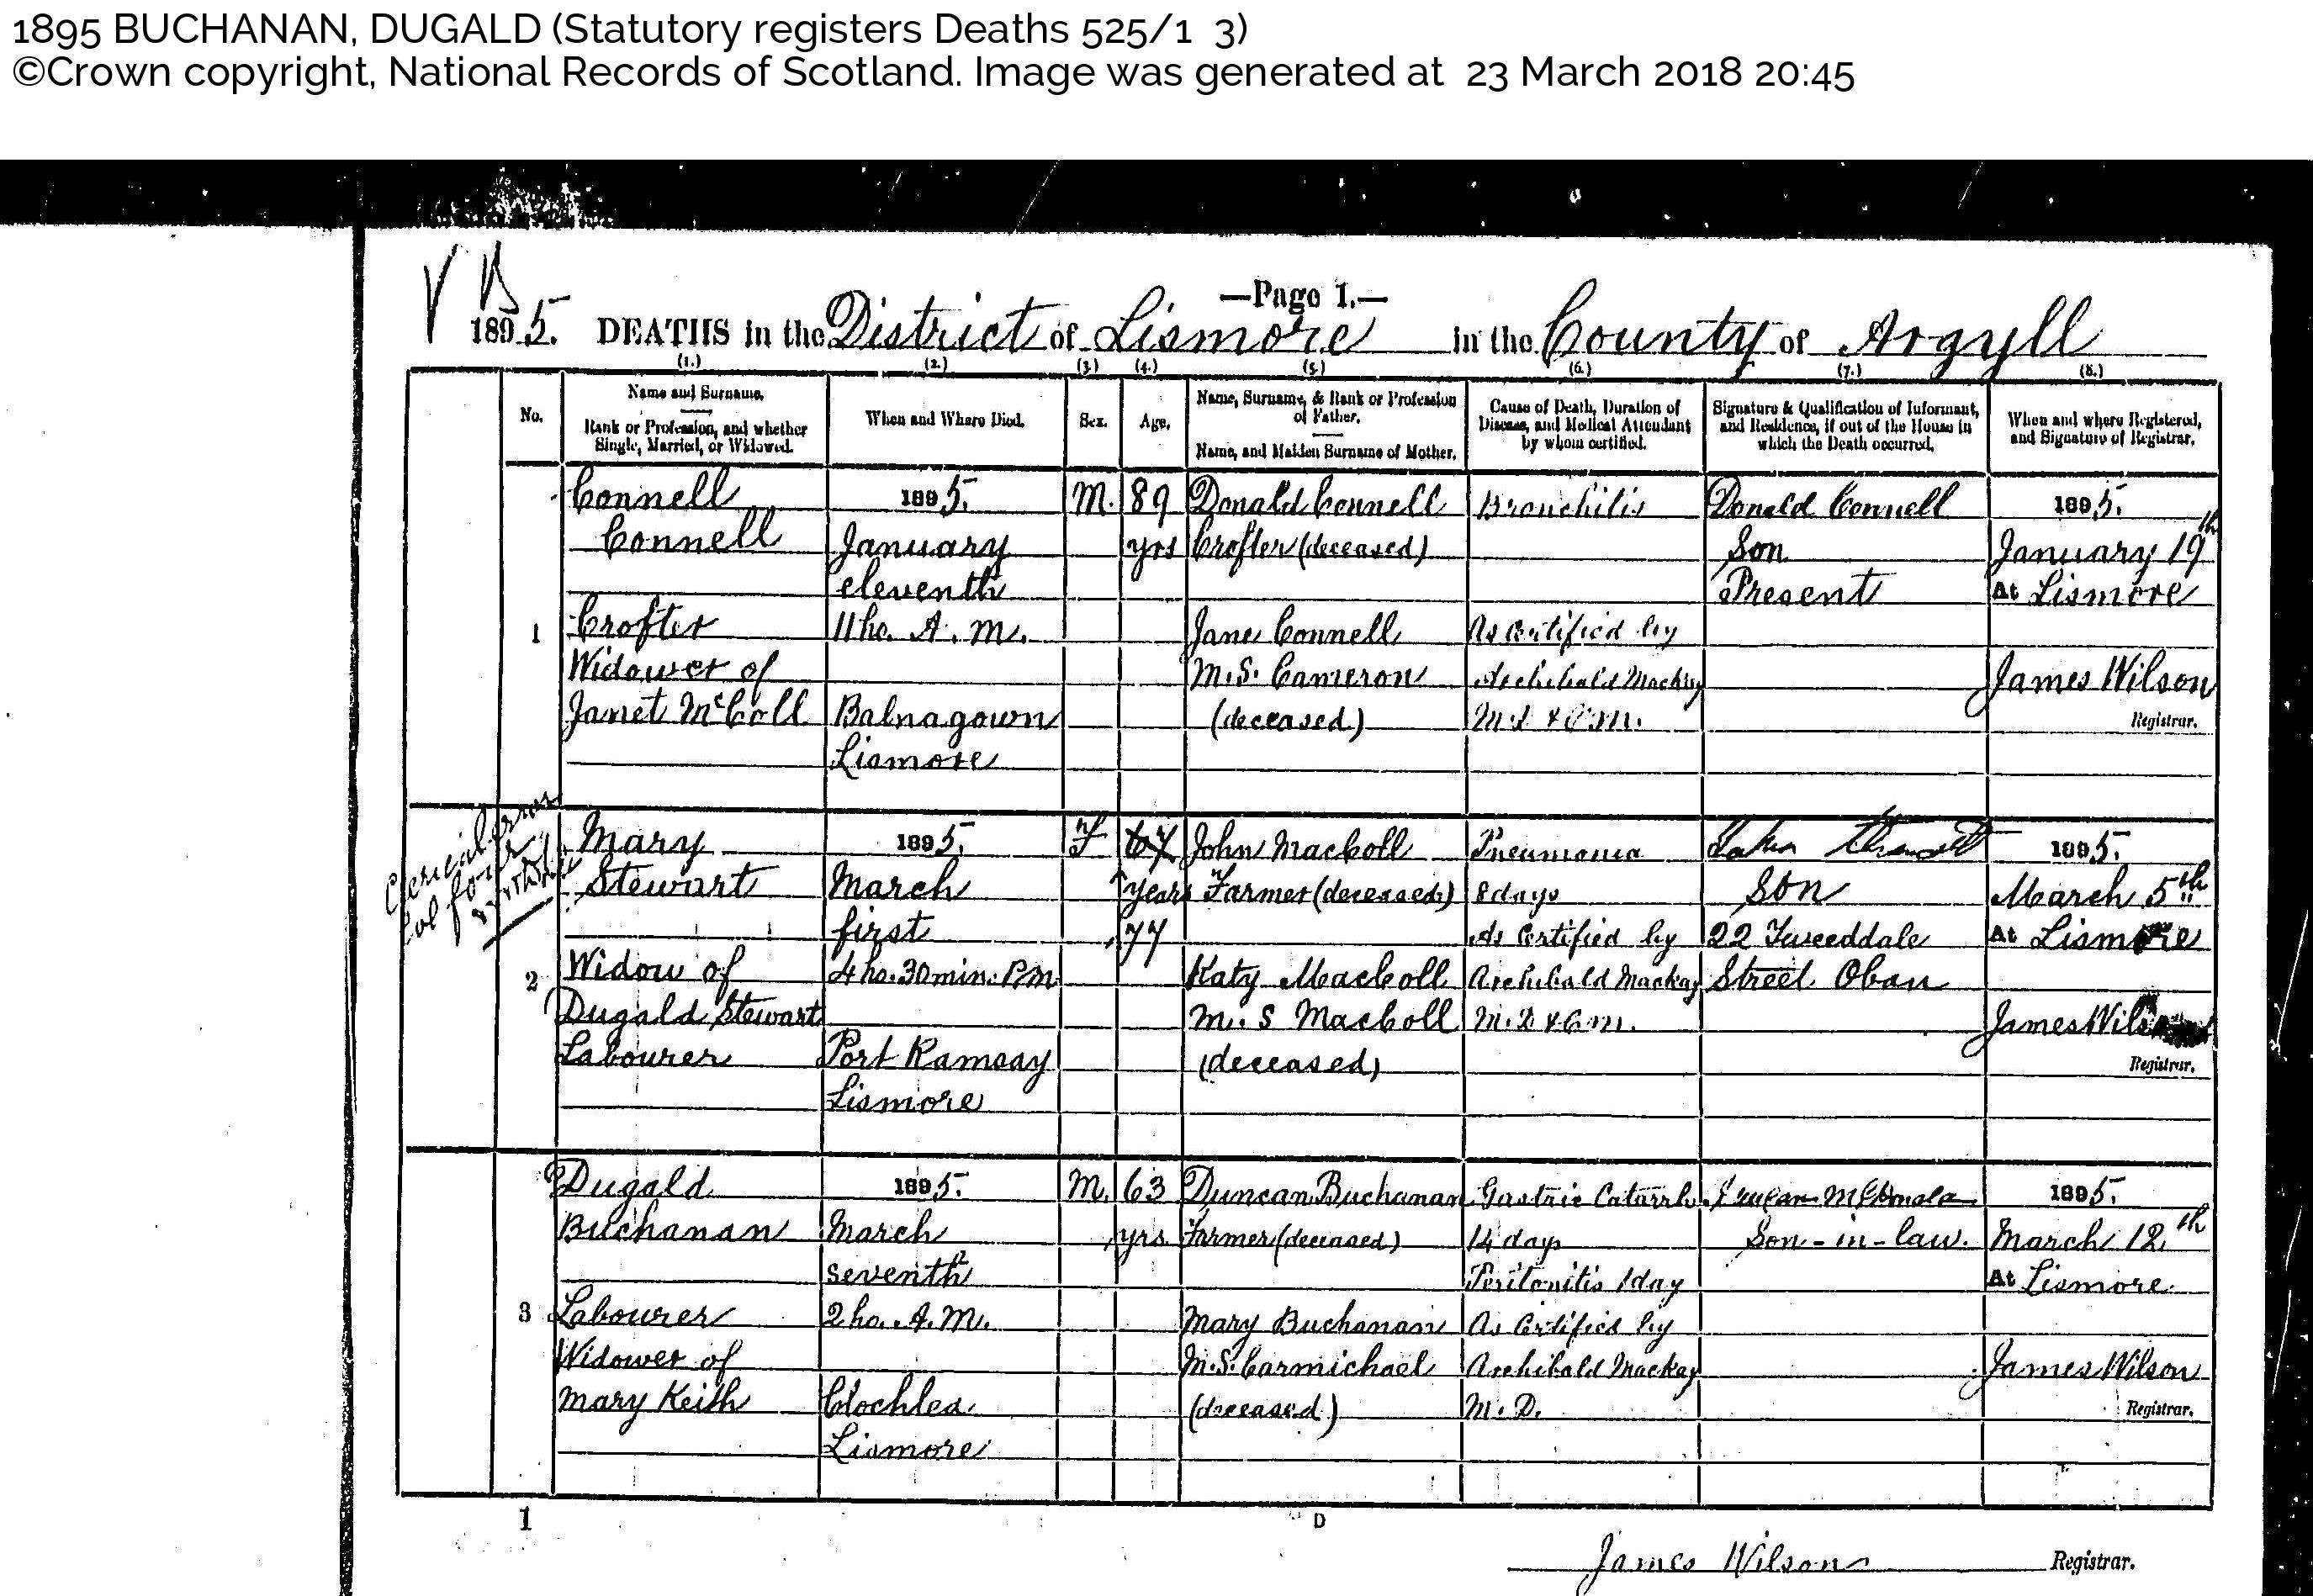 1895 BUCHANAN, DUGALD (Statutory registers Deaths 525/1 3)
©Crown copyright, National Records of Scotland. Image was generated at 23 March 2018 20:45
—Page 1.—
1895. DEATHS in the District of Lismore in the County of Argyll
(1.) (2.) (3.) (4.) (5.) (6.) (7.) (8.)
No.
Name and Surname.
Rank or Profession, and whether
Single, Married, or Widowed.
When and Where Died.
Sex.
Age.
Name, Surname, & Rank or Profession
of Father.
Name, and Maiden Surname of Mother.
Cause of Death, Duration of
Disease, and Medical Attendant
by whom certified.
Signature & Qualification of Informant,
and Residence, if out of the House in
which the Death occurred.
When and where Registered,
and Signature of Registrar.
1
Connell
Connell
Crofter
Widower of
Janet McColl
1895.
January
eleventh
11 ho. A. M.
Balnagown
Lismore
M.
89
yrs
Donald Connell
Crofter (deceased)
Jane Connell
M.S. Cameron
(deceased)
Bronchitis
As certified by
Archibald Mackay
M.D. & C.M.
Donald Connell
Son
Present
1895.
January 19th
At Lismore
James Wilson
Registrar.
Clerical error
2
Mary
Stewart
Widow of
Dugald Stewart
Labourer
1895.
March
first
4 ho. 30 min. P.M.
Port Ramsay
Lismore
F
67
years
77
John MacColl
Farmer (deceased)
Katy MacColl
M. S MacColl
(deceased)
Pneumonia
8 days
As certified by
Archibald Mackay
M.D & C.M.
Son
22 Tweeddale
Street Oban
1895.
March 5th
At Lismore
James Wilson
Registrar.
3
Dugald
Buchanan
Labourer
Widower of
Mary Keith
1895.
March
seventh
2 ho. A.M.
Clochlea
Lismore
M.
63
yrs.
Duncan Buchanan
Farmer (deceased)
Mary Buchanan
M.S. Carmichael
(deceased)
Gastric Catarrh.
14 days
Peritonitis 1 day
As Certified by
Archibald Mackay
M. D.
Son-in-law.
1895.
March 12th
At Lismore
James Wilson
Registrar.
1
D
James Wilson Registrar.